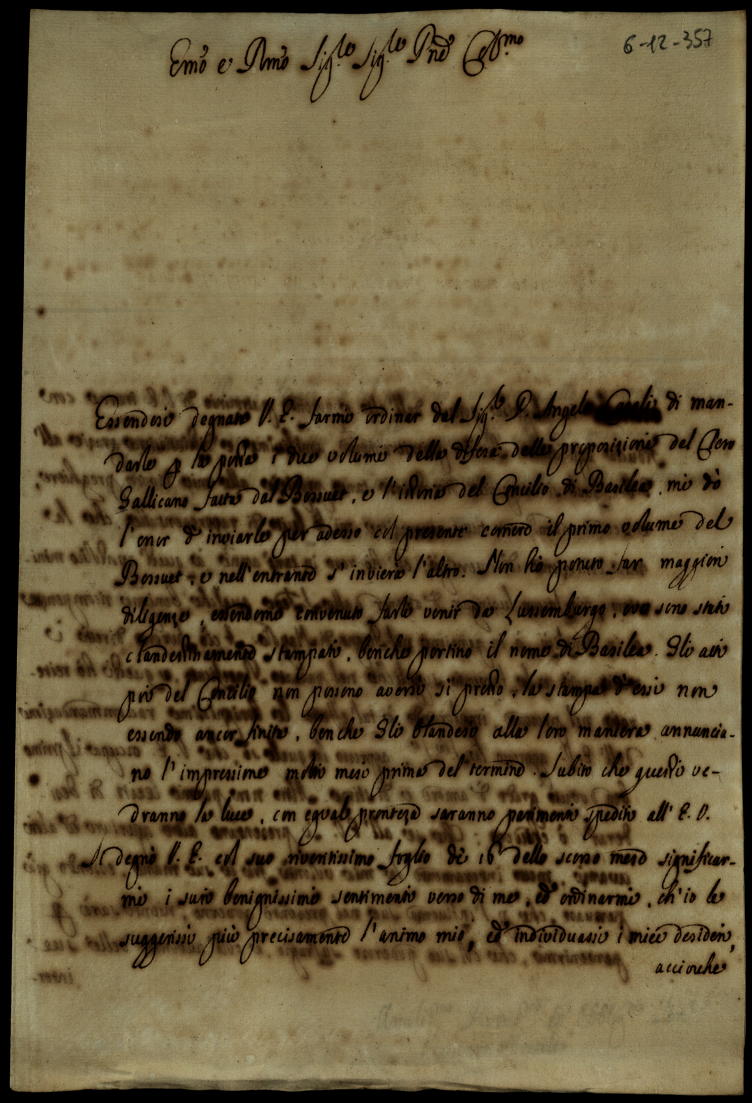 6-12-357
Emo e Rmo Sig.re Sig.re Pne Col.mo
Essendosi degnata V. E. farmi ordinar dal Sig.r D. Angelo di man-
darle p la posta i due volumi della difesa delle proposizioni del Clero
Gallicano fatta dal Bossuet, e l'istoria del Concilio di Basilea, mi dò
l'onor d'inviarle per adesso col presente corriero il primo volume del
Bossuet, e nell'entrante s'invierà l'altro. Non hò potuto far maggiori
diligenze, essendomi convenuto farli venir da Lussemburgo, ove sono stati
clandestinamente stampati, benche portino il nome di Basilea. Gli atti
poi del Concilio non possono aversi si presto, la stampa d'essi non
essendo ancor finita, benche Gli Olandesi alla loro maniera annuncia-
no l'impressione molti mesi prima del termine. Subito che questi ve-
dranno la luce, con egual prontezza saranno parimenti spediti all' E. V.
Si degnò V. E. col suo riveritissimo foglio de 16 dello scorso mese significar-
mi i suoi benignissimi sentimenti verso di me, ed ordinarmi, ch'io le
suggerissi più precisamente l'animo mio, ed individuassi i miei desideri,
accioche